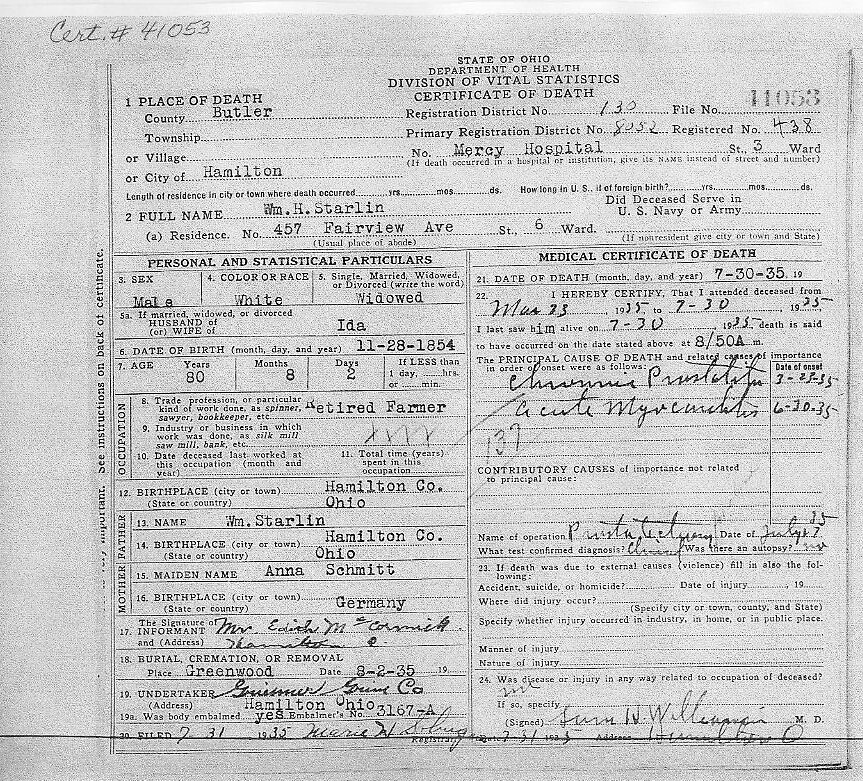 Cert. # 41053
STATE OF OHIO
DEPARTMENT OF HEALTH
DIVISION OF VITAL STATISTICS
CERTIFICATE OF DEATH
1 PLACE OF DEATH
County Butler
Township
or Village
or City of Hamilton
Registration District No. 130 File No. 41053
Primary Registration District No. 8052 Registered No. 438
No. Mercy Hospital St., 3 Ward
(If death occurred in a hospital or institution, give its NAME instead of street and number)
Length of residence in city or town where death occurred yrs. mos. ds. How long in U. S., if of foreign birth? yrs. mos. ds.
2 FULL NAME Wm.H.Starlin
Did Deceased Serve in
U. S. Navy or Army
(a) Residence. No. 457 Fairview Ave St., 6 Ward.
(Usual place of abode)
(If nonresident give city or town and State)
PERSONAL AND STATISTICAL PARTICULARS
3. SEX Male
4. COLOR OR RACE White
5. Single, Married, Widowed,
or Divorced (write the word)
Widowed
5a. If married, widowed, or divorced
HUSBAND of
(or) WIFE of Ida
6. DATE OF BIRTH (month, day, and year) 11-28-1854
7. AGE Years 80 Months 8 Days 2
If LESS than
1 day, hrs.
or min.
OCCUPATION
8. Trade, profession, or particular
kind of work done, as spinner,
sawyer, bookkeeper, etc. Retired Farmer
9. Industry or business in which
work was done, as silk mill
saw mill, bank, etc.
10. Date deceased last worked at
this occupation (month and
year)
11. Total time (years)
spent in this
occupation
12. BIRTHPLACE (city or town) Hamilton Co.
(State or country) Ohio
FATHER
13. NAME Wm.Starlin
14. BIRTHPLACE (city or town) Hamilton Co.
(State or country) Ohio
MOTHER
15. MAIDEN NAME Anna Schmitt
16. BIRTHPLACE (city or town)
(State or country) Germany
17. The Signature of
INFORMANT Mrs Edith McCormick
and (Address) Hamilton O.
18. BURIAL, CREMATION, OR REMOVAL
Place Greenwood Date 8-2-35 19
19. UNDERTAKER
(Address) Hamilton Ohio
19a. Was body embalmed yes Embalmer's No. 3167-A
20. FILED 7 31 1935 Marie
Registrar
MEDICAL CERTIFICATE OF DEATH
21. DATE OF DEATH (month, day, and year) 7-30-35. 19
22. I HEREBY CERTIFY, That I attended deceased from
Mar 23 1935 to 7-30 1935
I last saw him alive on 7-30 1935 death is said
to have occurred on the date stated above at 8/50A m.
The PRINCIPAL CAUSE OF DEATH and related causes of importance
in order of onset were as follows:
Date of onset
Chronic Prostatitis 3-23-35
Acute Myocarditis 6-30-35
137
CONTRIBUTORY CAUSES of importance not related
to principal cause:
Name of operation Prostatectomy Date of July 7 35
What test confirmed diagnosis? Clinical Was there an autopsy? no
23. If death was due to external causes (violence) fill in also the fol-
lowing:
Accident, suicide, or homicide? Date of injury , 19
Where did injury occur?
(Specify city or town, county, and State)
Specify whether injury occurred in industry, in home, or in public place.
Manner of injury
Nature of injury
24. Was disease or injury in any way related to occupation of deceased?
no
If so, specify
(Signed) M. D.
Date 7-31 1935 Address Hamilton O
See instructions on back of certificate.